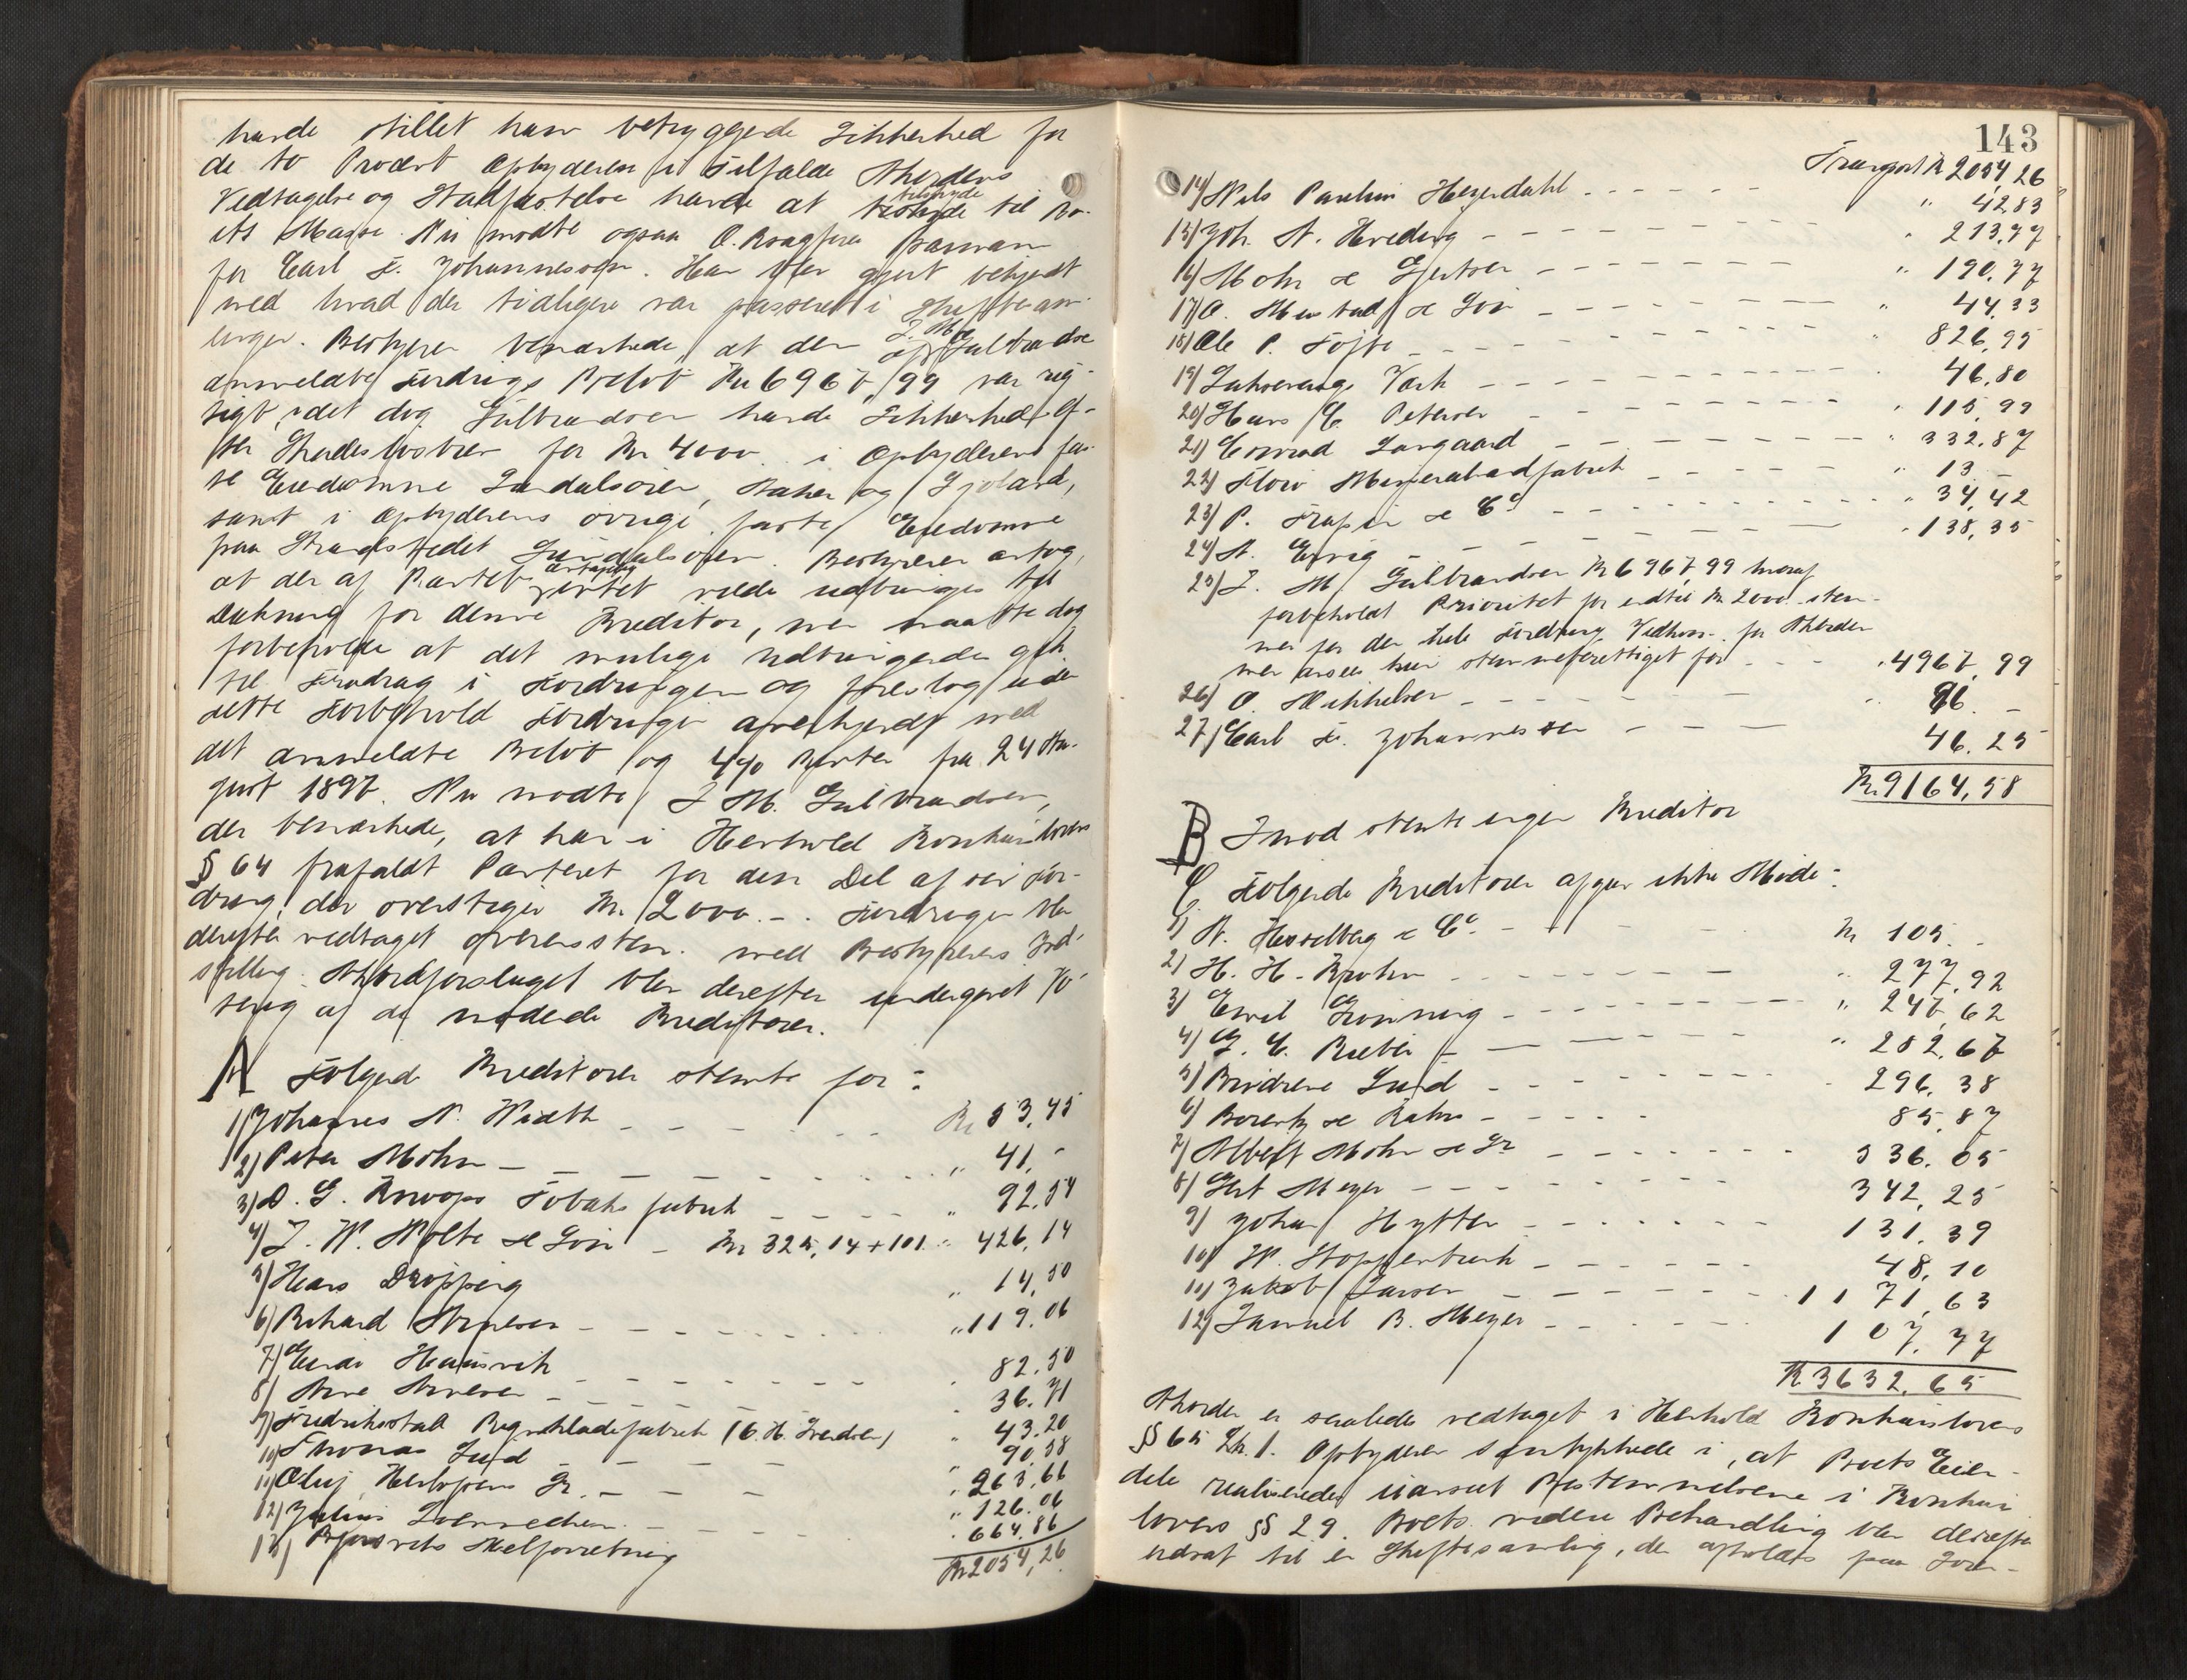 havde stillet ham betryggende Sikkerhed for
de 10 Procent Opbyderen i Tilfælde Akkordens
Vedtagelse og Stadfæstelse havde at tilskyde
til Bo-
ets Masse. Nu mødte ogsaa O. Kragh
for Carl F. Johannessen. Han blev gjort bekjendt
med hvad der tidligere var passeret i Skiftesam-
linger. Bestyreren bemærkede, at den af J. M. Gulbrandsen
anmeldte Fordrings Beløb Kr 6967,99 var rig-
tigt, idet dog Gulbrandsen havde Sikkerhed ef-
ter Skadesløsbrev for Kr 4000 i Opbyderens fa-
ste Eiendomme Lærdalsøren, og
samt i Opbyderens øvrige faste Eiendomme
paa Strandstedet Lærdalsøren. Bestyreren antog,
at der af Pantet antagelig intet vilde udbringes til
Dækning for denne Kreditor, men maatte dog
forbeholde at det mulige udbringende gik
til Fradrag i Fordringen og foreslog under
dette Forbehold Fordringen anerkjendt med
det anmeldte Beløb og 4% Renter fra 24 Au-
gust 1897. Nu mødte J M. Gulbrandsen,
der bemærkede, at han i Henhold Konkurslovens
§ 64 frafaldt Panteret for den Del af sin For-
dring, der overstiger Kr. 2000.-. Fordringen blev
derefter vedtaget overensstem. med Bestyrerens Ind-
stilling. Akkordforslaget blev derefter undergivet Vo-
tering af de mødende Kreditorer.
A Følgende Kreditorer stemte for:
1) Johannes N. Wiath - - - Kr 53,45
2) Peter Mohn - - - " 41,-
3) D. G. Knoops Tobaksfabrik - - - " 92.54
4) J. W. Nolte & Søn - Kr 325,14 + 101 " 426,14
5) Hans Dropping " 14,50
6) Rikard Arnesen - - - " 119.06
7) Hausvik - - - 82.50
8) Arne Arnesen - 36.71
9) Fredriksstad Bogombladefabrik (C. H. Svendsen) " 43.20
10) Thomas Lund - - - " 90,58
11) Oluf Herlofsens Jr. - - - " 263,66
12) Julius - - - " 126.06
13) Melforretning " 664,86
Kr 2054,26
143
Transport Kr 2054,26
14) Nils Paulin Heyerdahl - - - " 42,83
15) Joh. N. Hveding - - - " 213,77
16) Mohr & Gjertsen - - - " 190,77
17) O. Mustad & Søn - - - " 44,33
18) Ole P. Tofte - - - " 826,95
19) Værk - - - 46,80
20) Hans C. Petersen - - - " 115,99
21) Conrad Langaard - - - " 332,87
22) Florø Mineralvandfabrik - - - " 13 -
23) P. & Co - - - " 34,42
24) A. - - - " 138,35
25) J. M. Gulbrandsen Kr 6967,99 hvoraf
forbeholdt Prioritet for indtil Kr 2000. stem-
mer for den hele Fordrings Vedkom. for Akkorden
men ansees kun stemmeberettiget for - - - " 4967,99
26) O. Mikkelsen - - - " 96. -
27) Carl F. Johannessen - - - 46,25
Kr. 9164,58
B Imod stemte ingen Kreditor
C. Følgende Kreditorer afgav ikke Møde:
1) A. Hesselberg & Co. - - - Kr 105. -
2) H. H. Krohn - - - " 277,92
3) Emil Grønning - - - " 247,62
4) G. C. Rieber - - - " 282,67
5) Brødrene Lund - - - " 296,38
6) & - - - 85,87
7) Albert Mohn & Sn - - - 536.05
8) Gert Meyer - - - 342,25
9) Johan Hytter - - - 131,39
10) W. Stoppenbrink - - - 48,10
11) Jakob Larsen - - - 1171,63
12) Samuel B. Meyer - - - 107,77
Kr 3632,65
Akkorden er saaledes vedtaget i Henhold Konkurslovens
§§ 65 Lk. 1. Opbyderen samtykkede i, at Boets Eien-
dele realiseredes uanset Bestemmelserne i Konkurs
lovens §§ 29. Boets videre Behandling blev derefter
udsat til en Skiftesamling, der afholdes paa Soren-